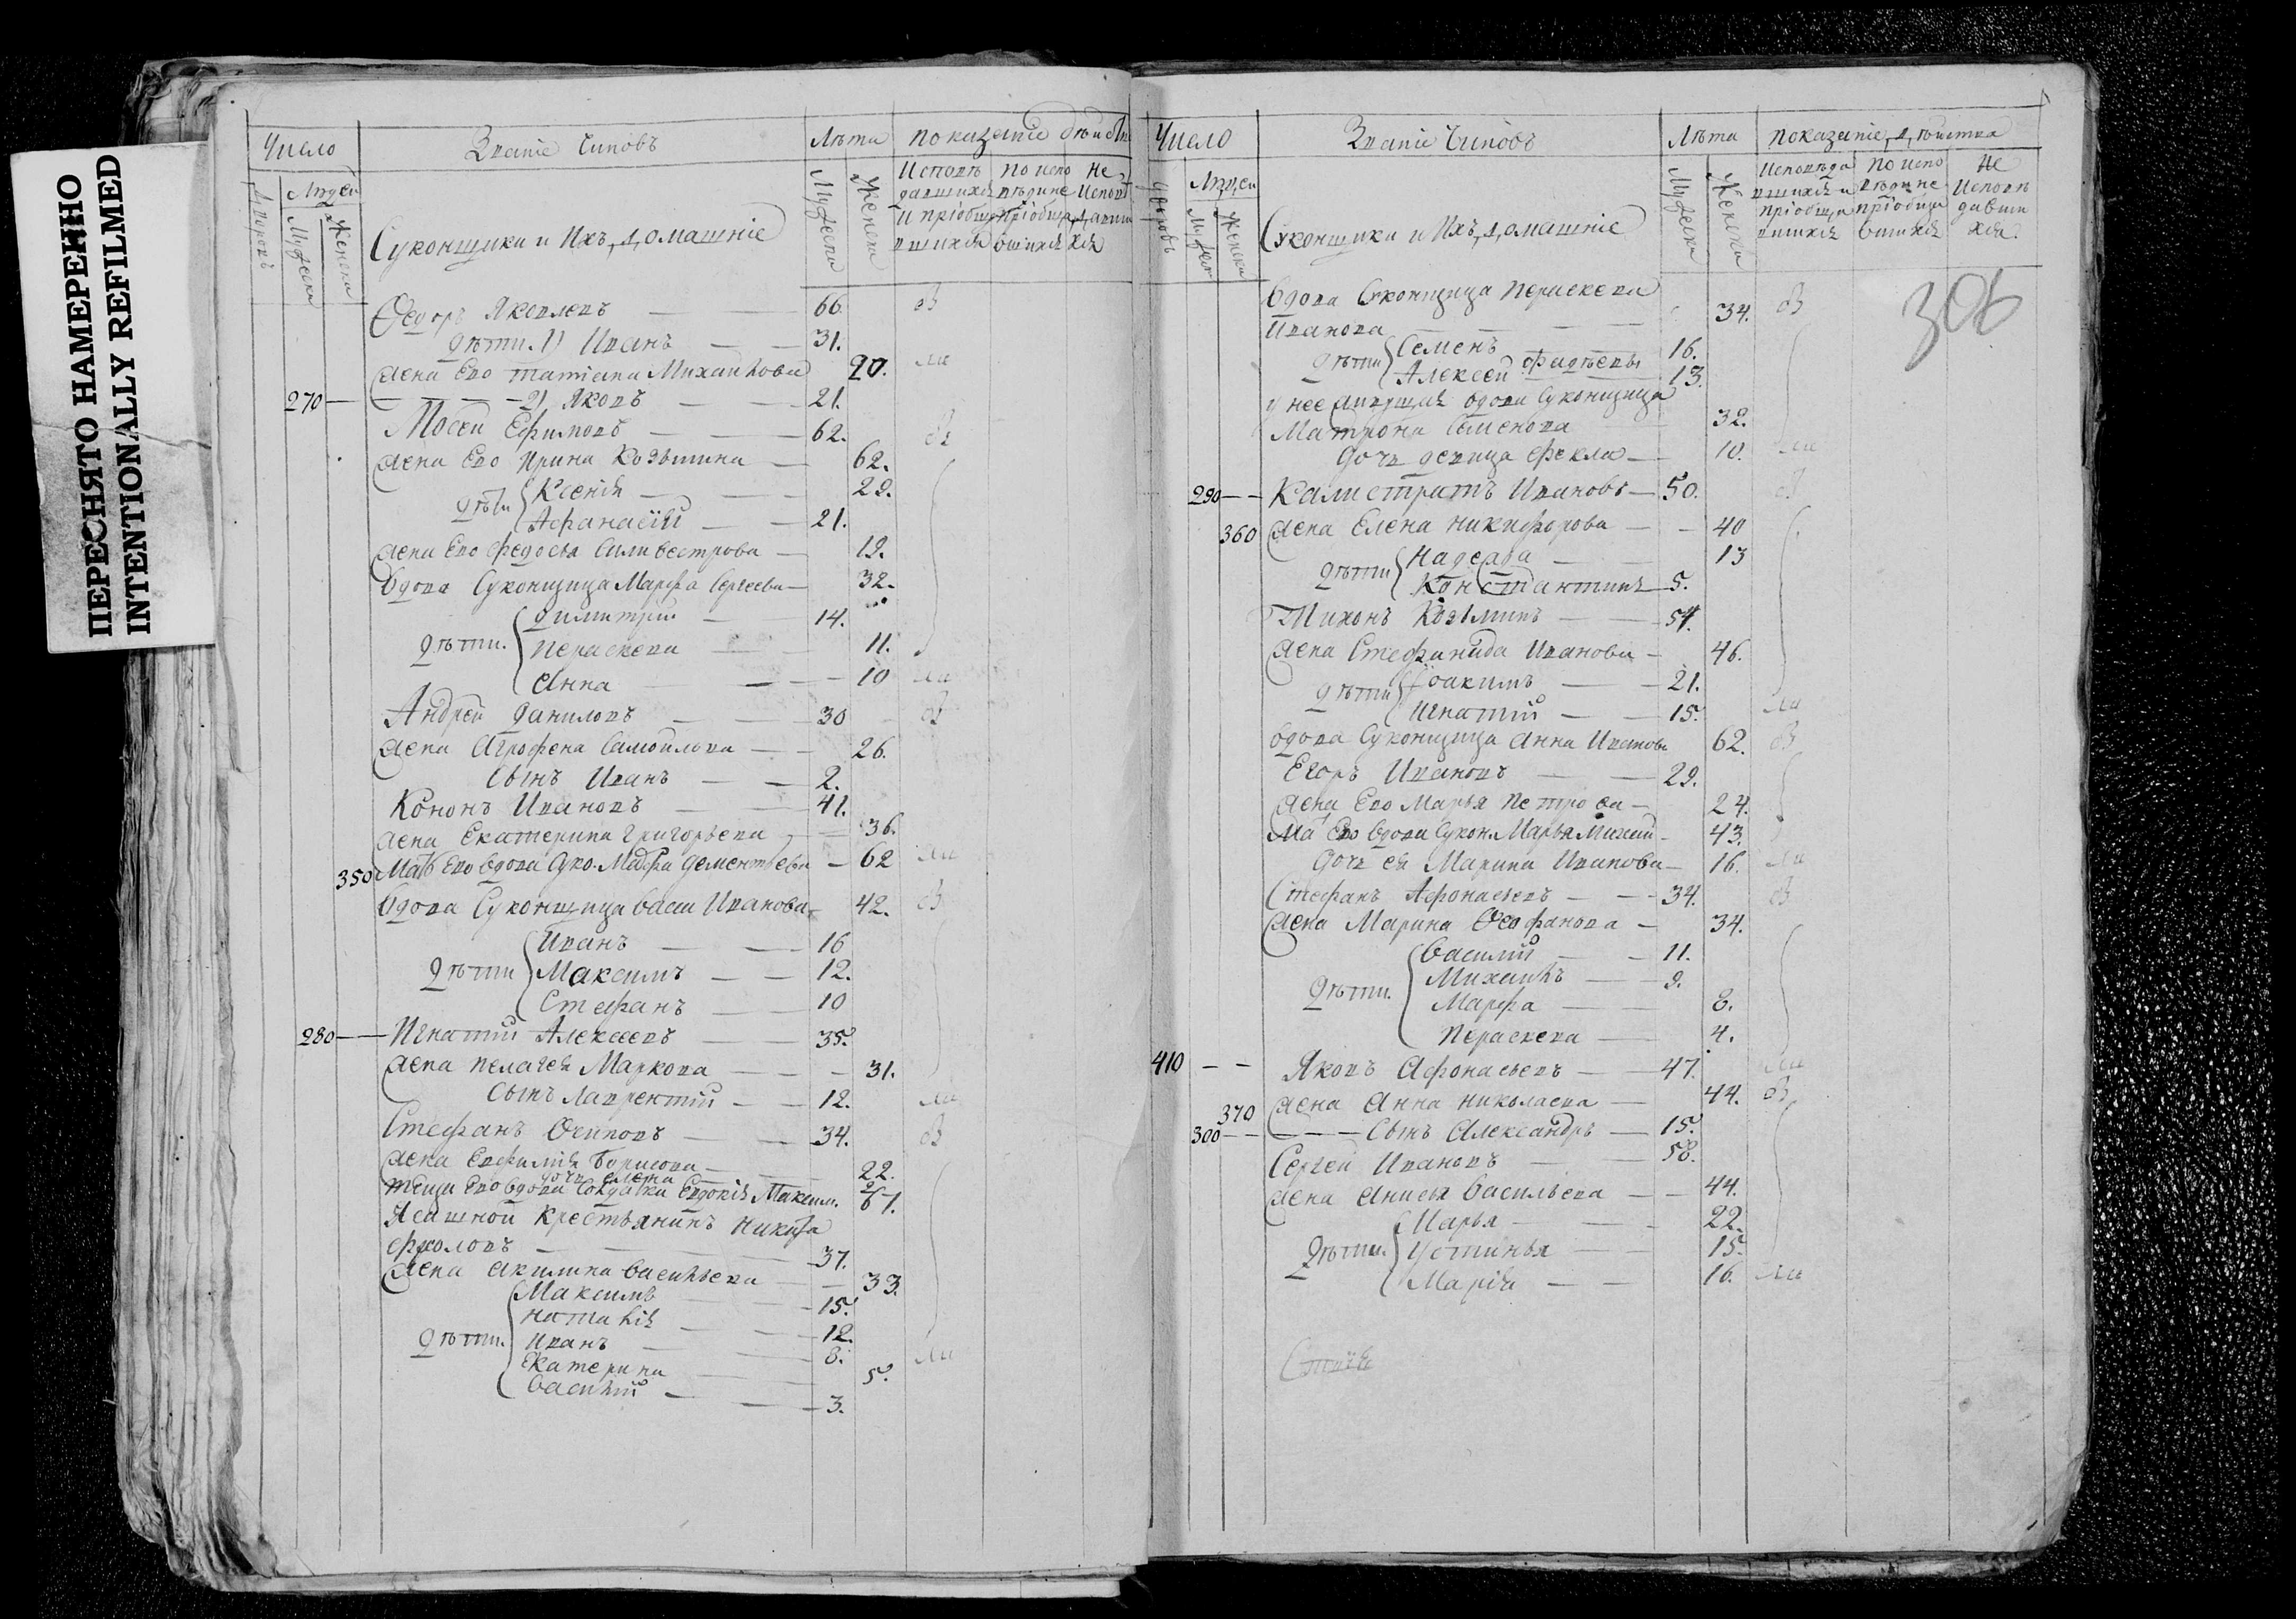 ПЕРЕСНЯТО НАМЕРЕННО
INTENTIONALLY REFILMED
Число
Званіе Чиновъ
Лѣта
показаніе дѣйст
Дворовъ
Людей
Мужеска
Женска
Суконщики и Ихъ домашніе
Мужеска
Женска
Исповѣ
давшихся
И пріобщи
вшихся
по испо
вѣди не
пріобщи
вшихся
Не
Исповѣ
давши
хся
Ѳедоръ Яковлевъ 66.
дѣти. 1) Иванъ 31.
жена Его татіана Михаилова 20.
270 2) Яковъ 21.
Мосеи Ефимовъ 62.
жена Его Ирина Козьмина 62.
дѣти Ксенія 22.
Афанасій 21.
жена Его Федосья Силивестрова 19.
вдова Суконщица Марфа Сергеева 32.
дѣти. димитрій 14.
пераскева 11.
Анна 10
Андрей даниловъ 30
жена Агрофена Самоилова 26.
Сынъ Иванъ 2.
Кононъ Ивановъ 41.
жена Екатерина григорьева 36.
350 Мать Его вдова Суко. Марфа дементьева 62
вдова Суконщица васи Иванова 42.
дѣти Иванъ 16
Максимъ 12.
Стефанъ 10
280 Игнатій Алексеевъ 35.
жена пелагея Маркова 31.
Сынъ Лаврентій 12.
Стефанъ Осиповъ 34.
жена Евфимія Борисова 22.
дочь елена 2
теща Его вдова Солдатка Евдокія Максим. 67.
Ясашной крестьянинъ Никита
фроловъ 37.
жена Акилина васильева 33.
дѣти. Максимъ 15.
наталія 12.
Иванъ 8.
Екатерина 5.
василій 3.
Число
Званіе Чиновъ
Лѣта
показаніе дѣйства
дворовъ
Людей
Мужеск
Женска
Суконщики и Ихъ домашніе
Мужеска
Женска
Исповѣда
вшихся и
пріобща
вшихся
по испо
вѣди не
пріобща
вшихся
Не
Исповѣ
давши
хся
306
вдова Суконщица пераскева
Иванова 34.
дѣти Семенъ 16.
Алексей фадѣевы 13.
у нее живущая вдова Суконщица
Матрона Семенова 32.
дочь девица Фекла 10.
290 Калистратъ Ивановъ 50.
360 жена Елена никифорова 40
дѣти надежда 13
константинъ 5.
Тихонъ Козьминъ 54.
жена Стефанида Иванова 46.
дѣти Іоакимъ 21.
игнатій 15.
вдова Суконщица Анна Иванова 62.
Егоръ Ивановъ 29.
жена Его Марья петрова 24.
Ма Его вдова Сукон. Марья Михай 43.
дочь ея Марина Иванова 16.
Стефанъ Афонасьевъ 34.
жена Марина Ѳеофанова 34.
дѣти. василій 11.
Михаилъ 9.
Марфа 8.
пераскева 4.
410 Яковъ Афонасьевъ 47.
370 жена Анна николаева 44.
300 Сынъ Александръ 15.
Сергей Ивановъ 58.
жена Анисья васильева 44.
дѣти. Марья 22.
устинья 15.
Марія 16.